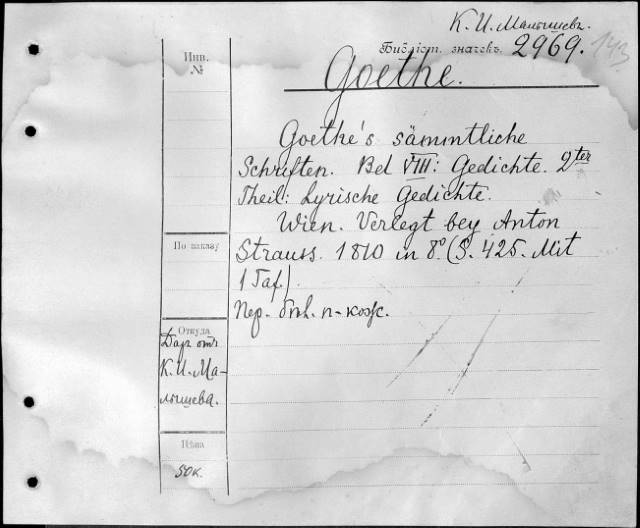 К. И. Малышевъ.
Библіот. значекъ. 2969. 143
Инв.
№
Goethe.
Goethe's sämmtliche
Schriften. Bd VIII: Gedichte. 2ter
Theil: Lyrische Gedichte.
Wien. Verlegt bey Anton
Strauss. 1810 in 8° (S. 425. Mit
1 Taf.)
Пер. п-кож.
По заказу
Откуда
Даръ отъ
К. И. Ма-
лышева.
Цѣна
50 к.